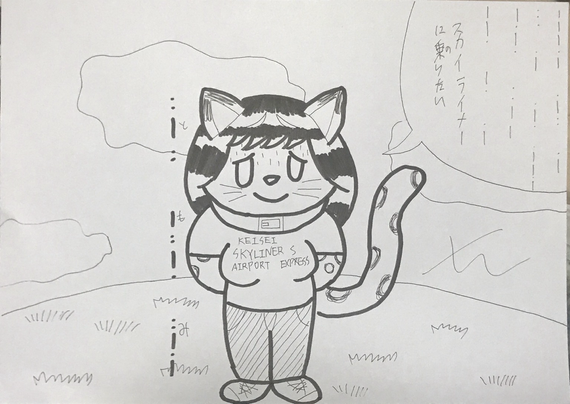 スカイライナー
に乗りたい
の
と
も
み
KEISEI
SKYLINER S
AIRPORT EXPRESS